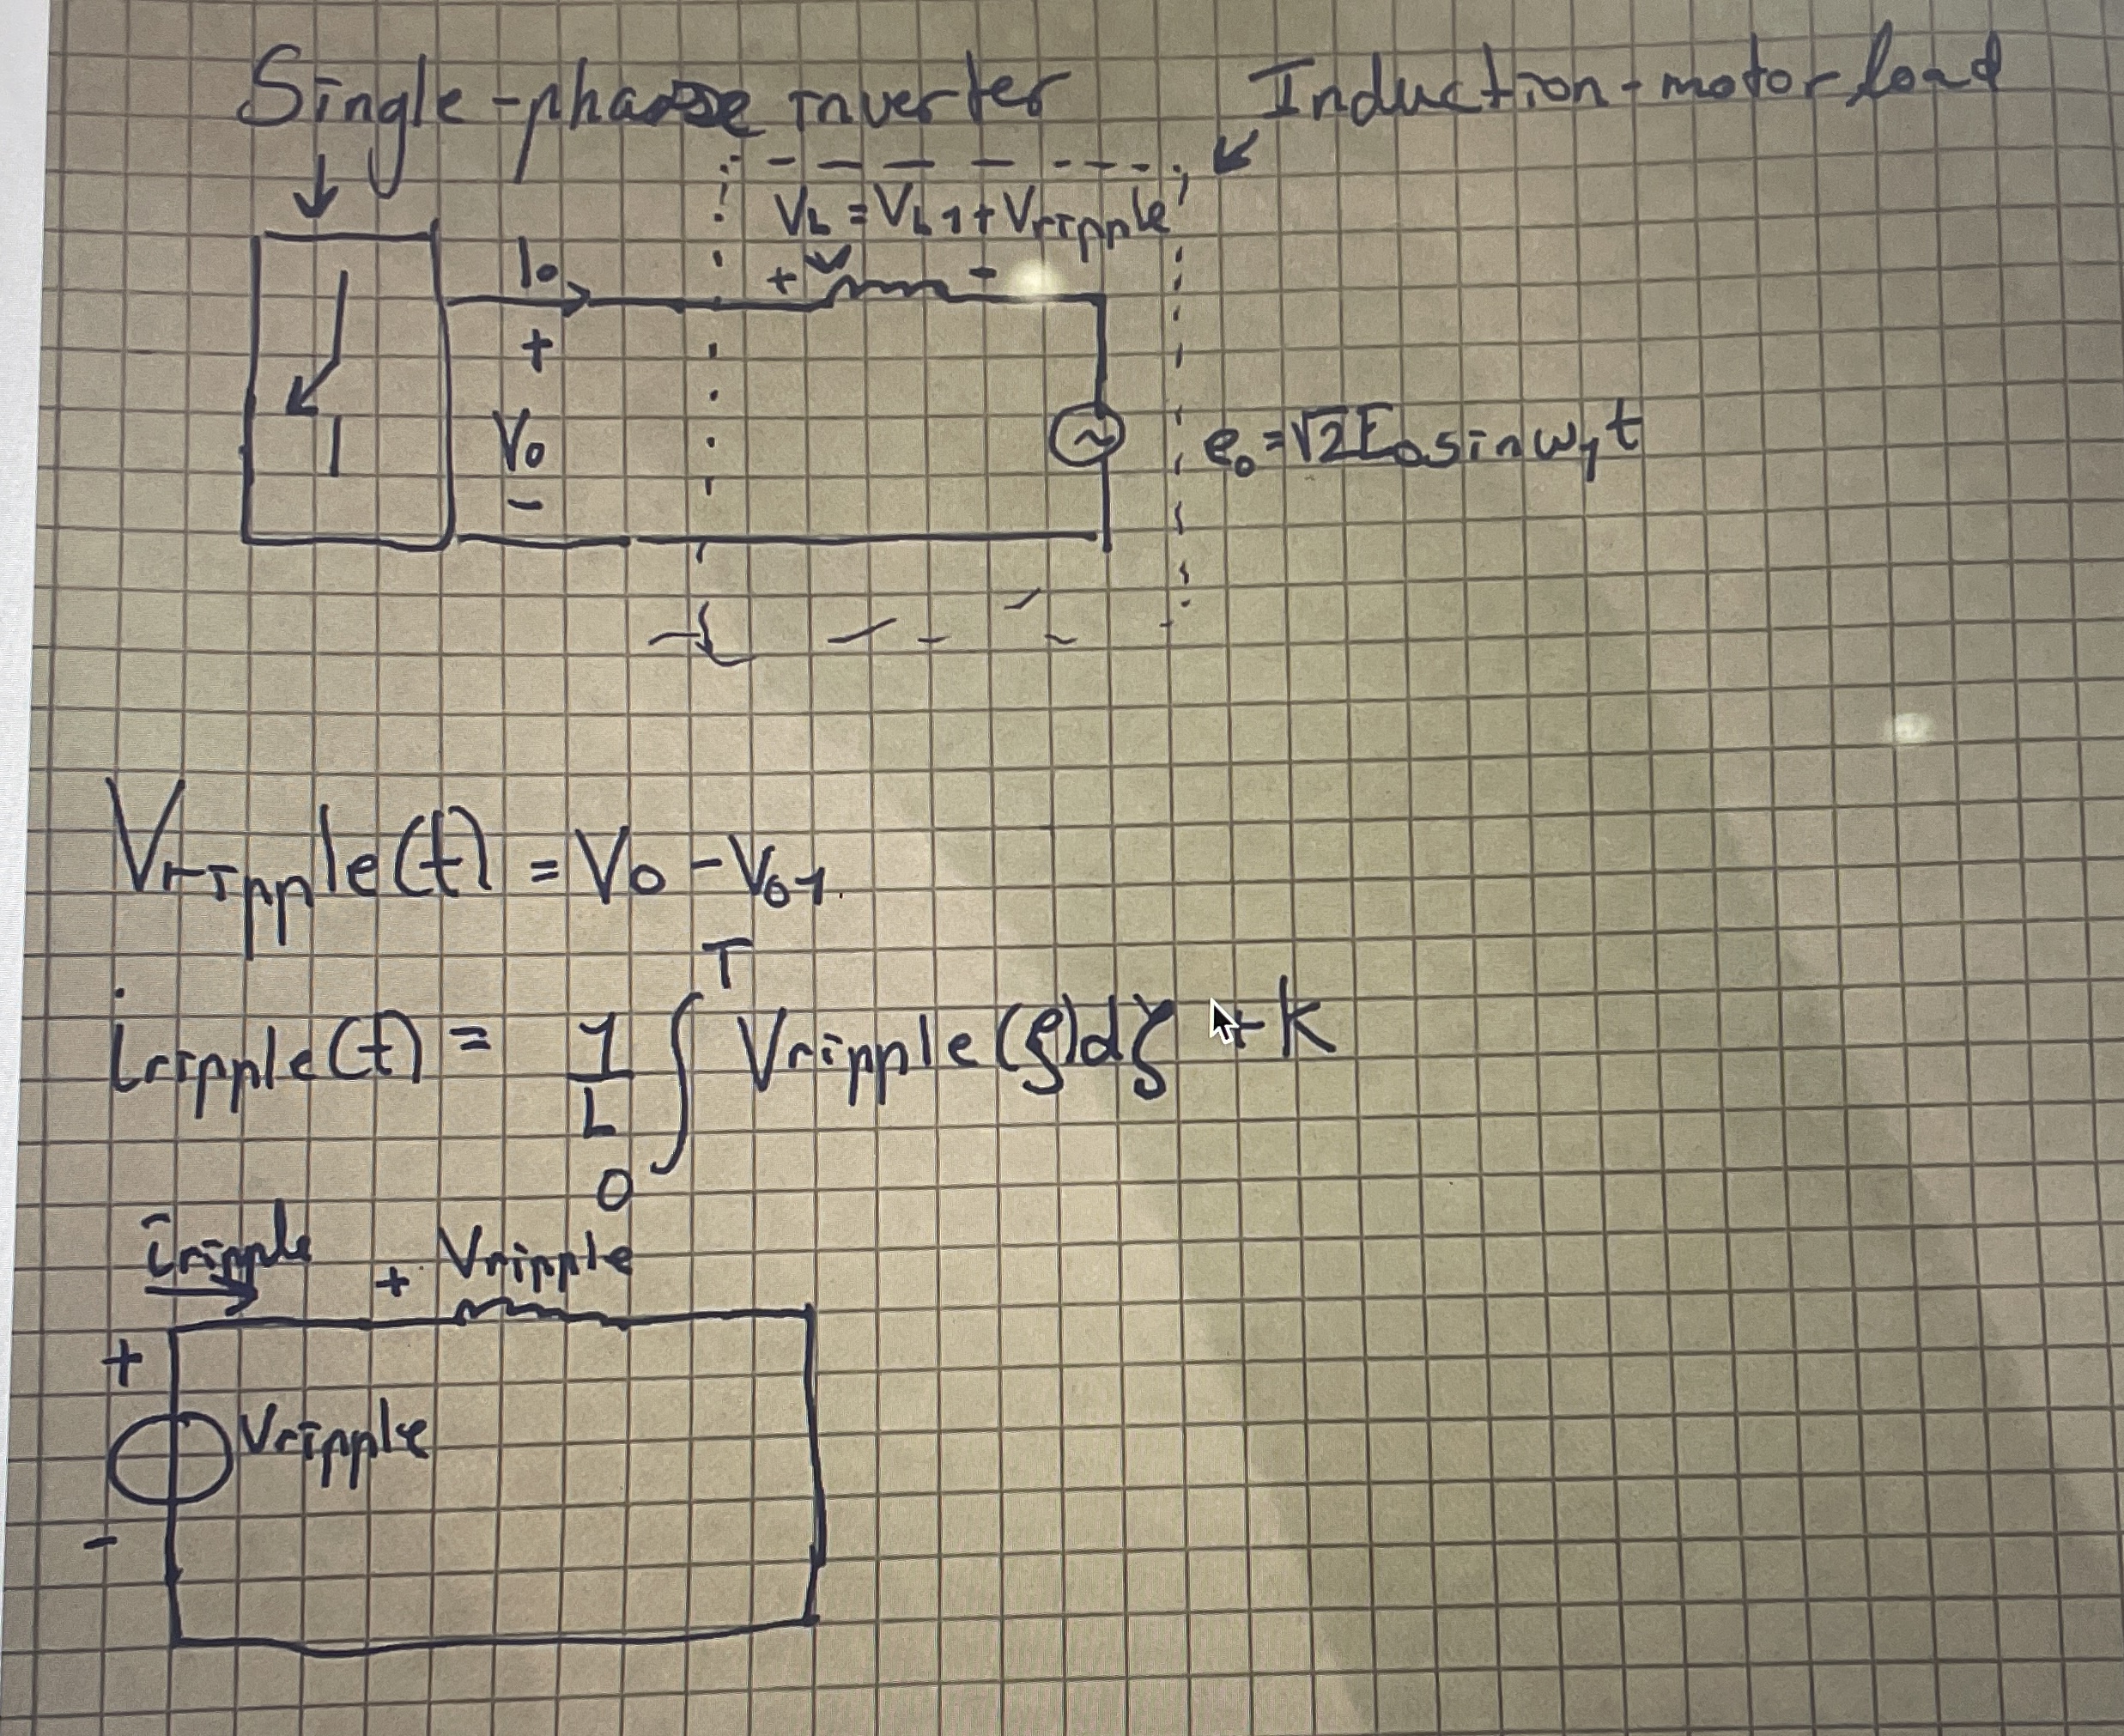 Single-phase inverter
Induction-motor load
VL = VL1 + Vripple
Io
+ -
+
Vo
-
~
eo = √2 Eo sin ω1t
Vripple(t) = Vo - Vo1.
iripple(t) = 1/L ∫0T Vripple(ξ)dζ + k
iripple
+ Vripple
+
Vripple
-